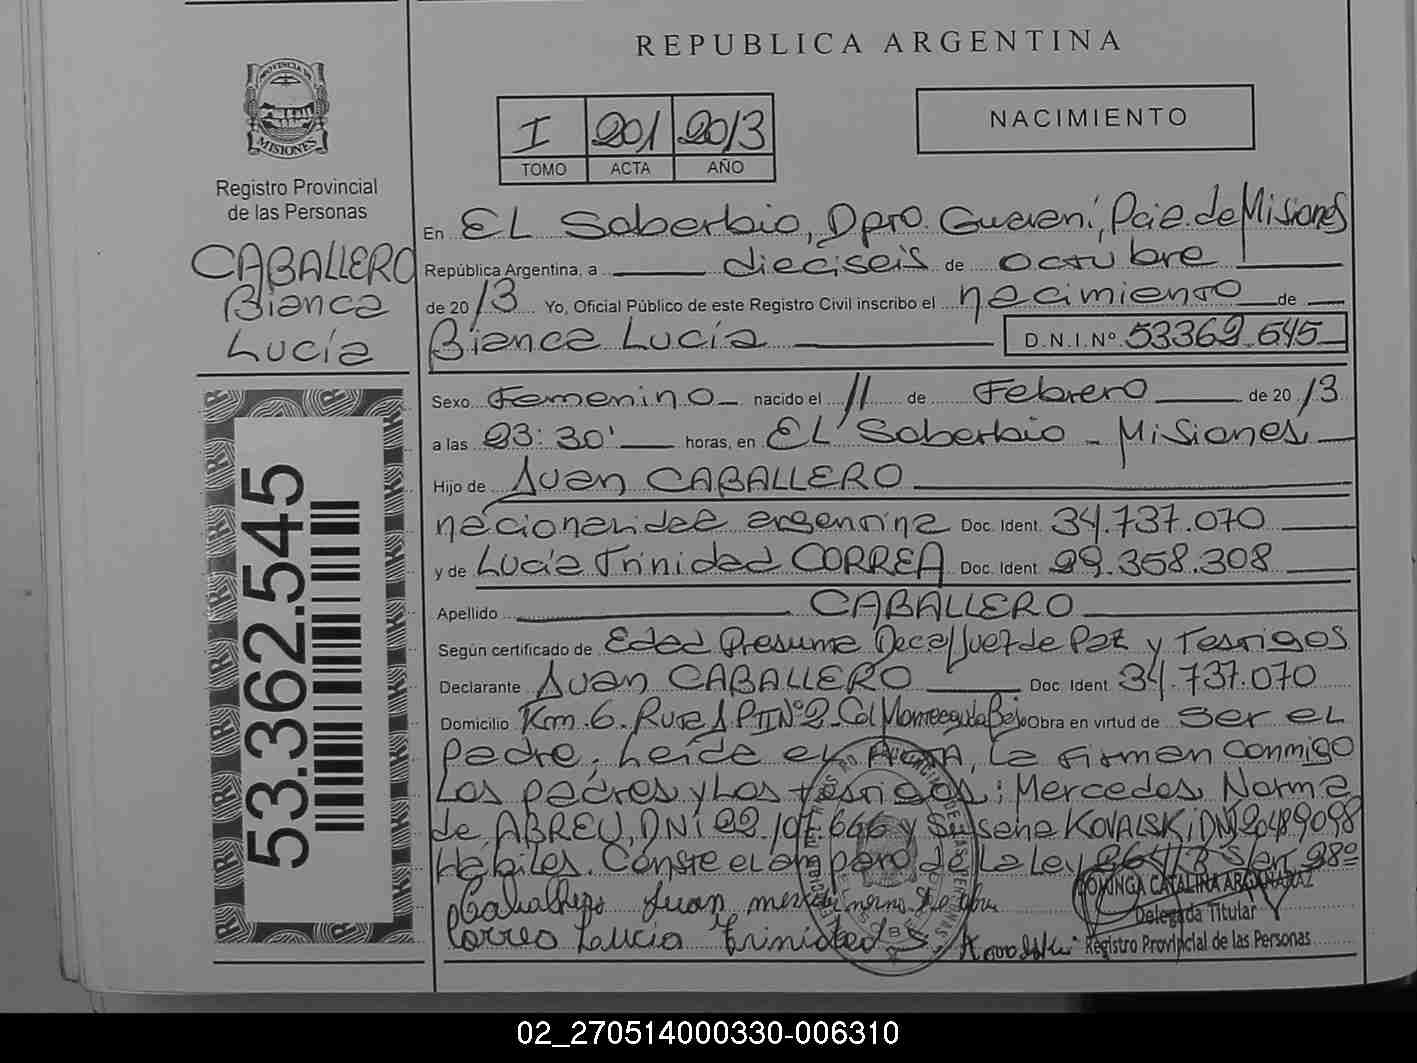 REPUBLICA ARGENTINA
PROVINCIA DE
MISIONES
Registro Provincial
de las Personas
CABALLERO
Bianca
Lucía
53.362.545
I 201 2013
TOMO ACTA AÑO
NACIMIENTO
En EL Soberbio, Dpto. Guaraní, Pcia. de Misiones
República Argentina, a dieciseis de octubre
de 2013 Yo, Oficial Público de este Registro Civil inscribo el nacimiento de
Bianca Lucía D.N.I.Nº 53362.545
Sexo Femenino nacido el 11 de Febrero de 2013
a las 23:30' horas, en EL Soberbio - Misiones
Hijo de Juan CABALLERO
nacionalidad argentina Doc. Ident. 34.737.070
y de Lucía Trinidad CORREA Doc. Ident. 29.358.308
Apellido CABALLERO
Según certificado de Edad Presunta Juez de Paz y Testigos
Declarante Juan CABALLERO Doc. Ident. 34.737.070
Domicilio Km. 6 - Ruta Nº2 - Col Monteagudo Bajo Obra en virtud de Ser el
padre. Leída el Acta, la firman conmigo
Los padres y Los testigos: Mercedes Norma
de ABREU, DNI 22.107.666 y Susana KOVALSKI, DNI 20489098
Hábiles. Conste el amparo de La Ley Art 28º
Caballero Juan
Correa Lucia Trinidad S. Kovalski
DOMINGA CATALINA ARGAÑARAZ
Delegada Titular
Registro Provincial de las Personas
02_270514000330-006310